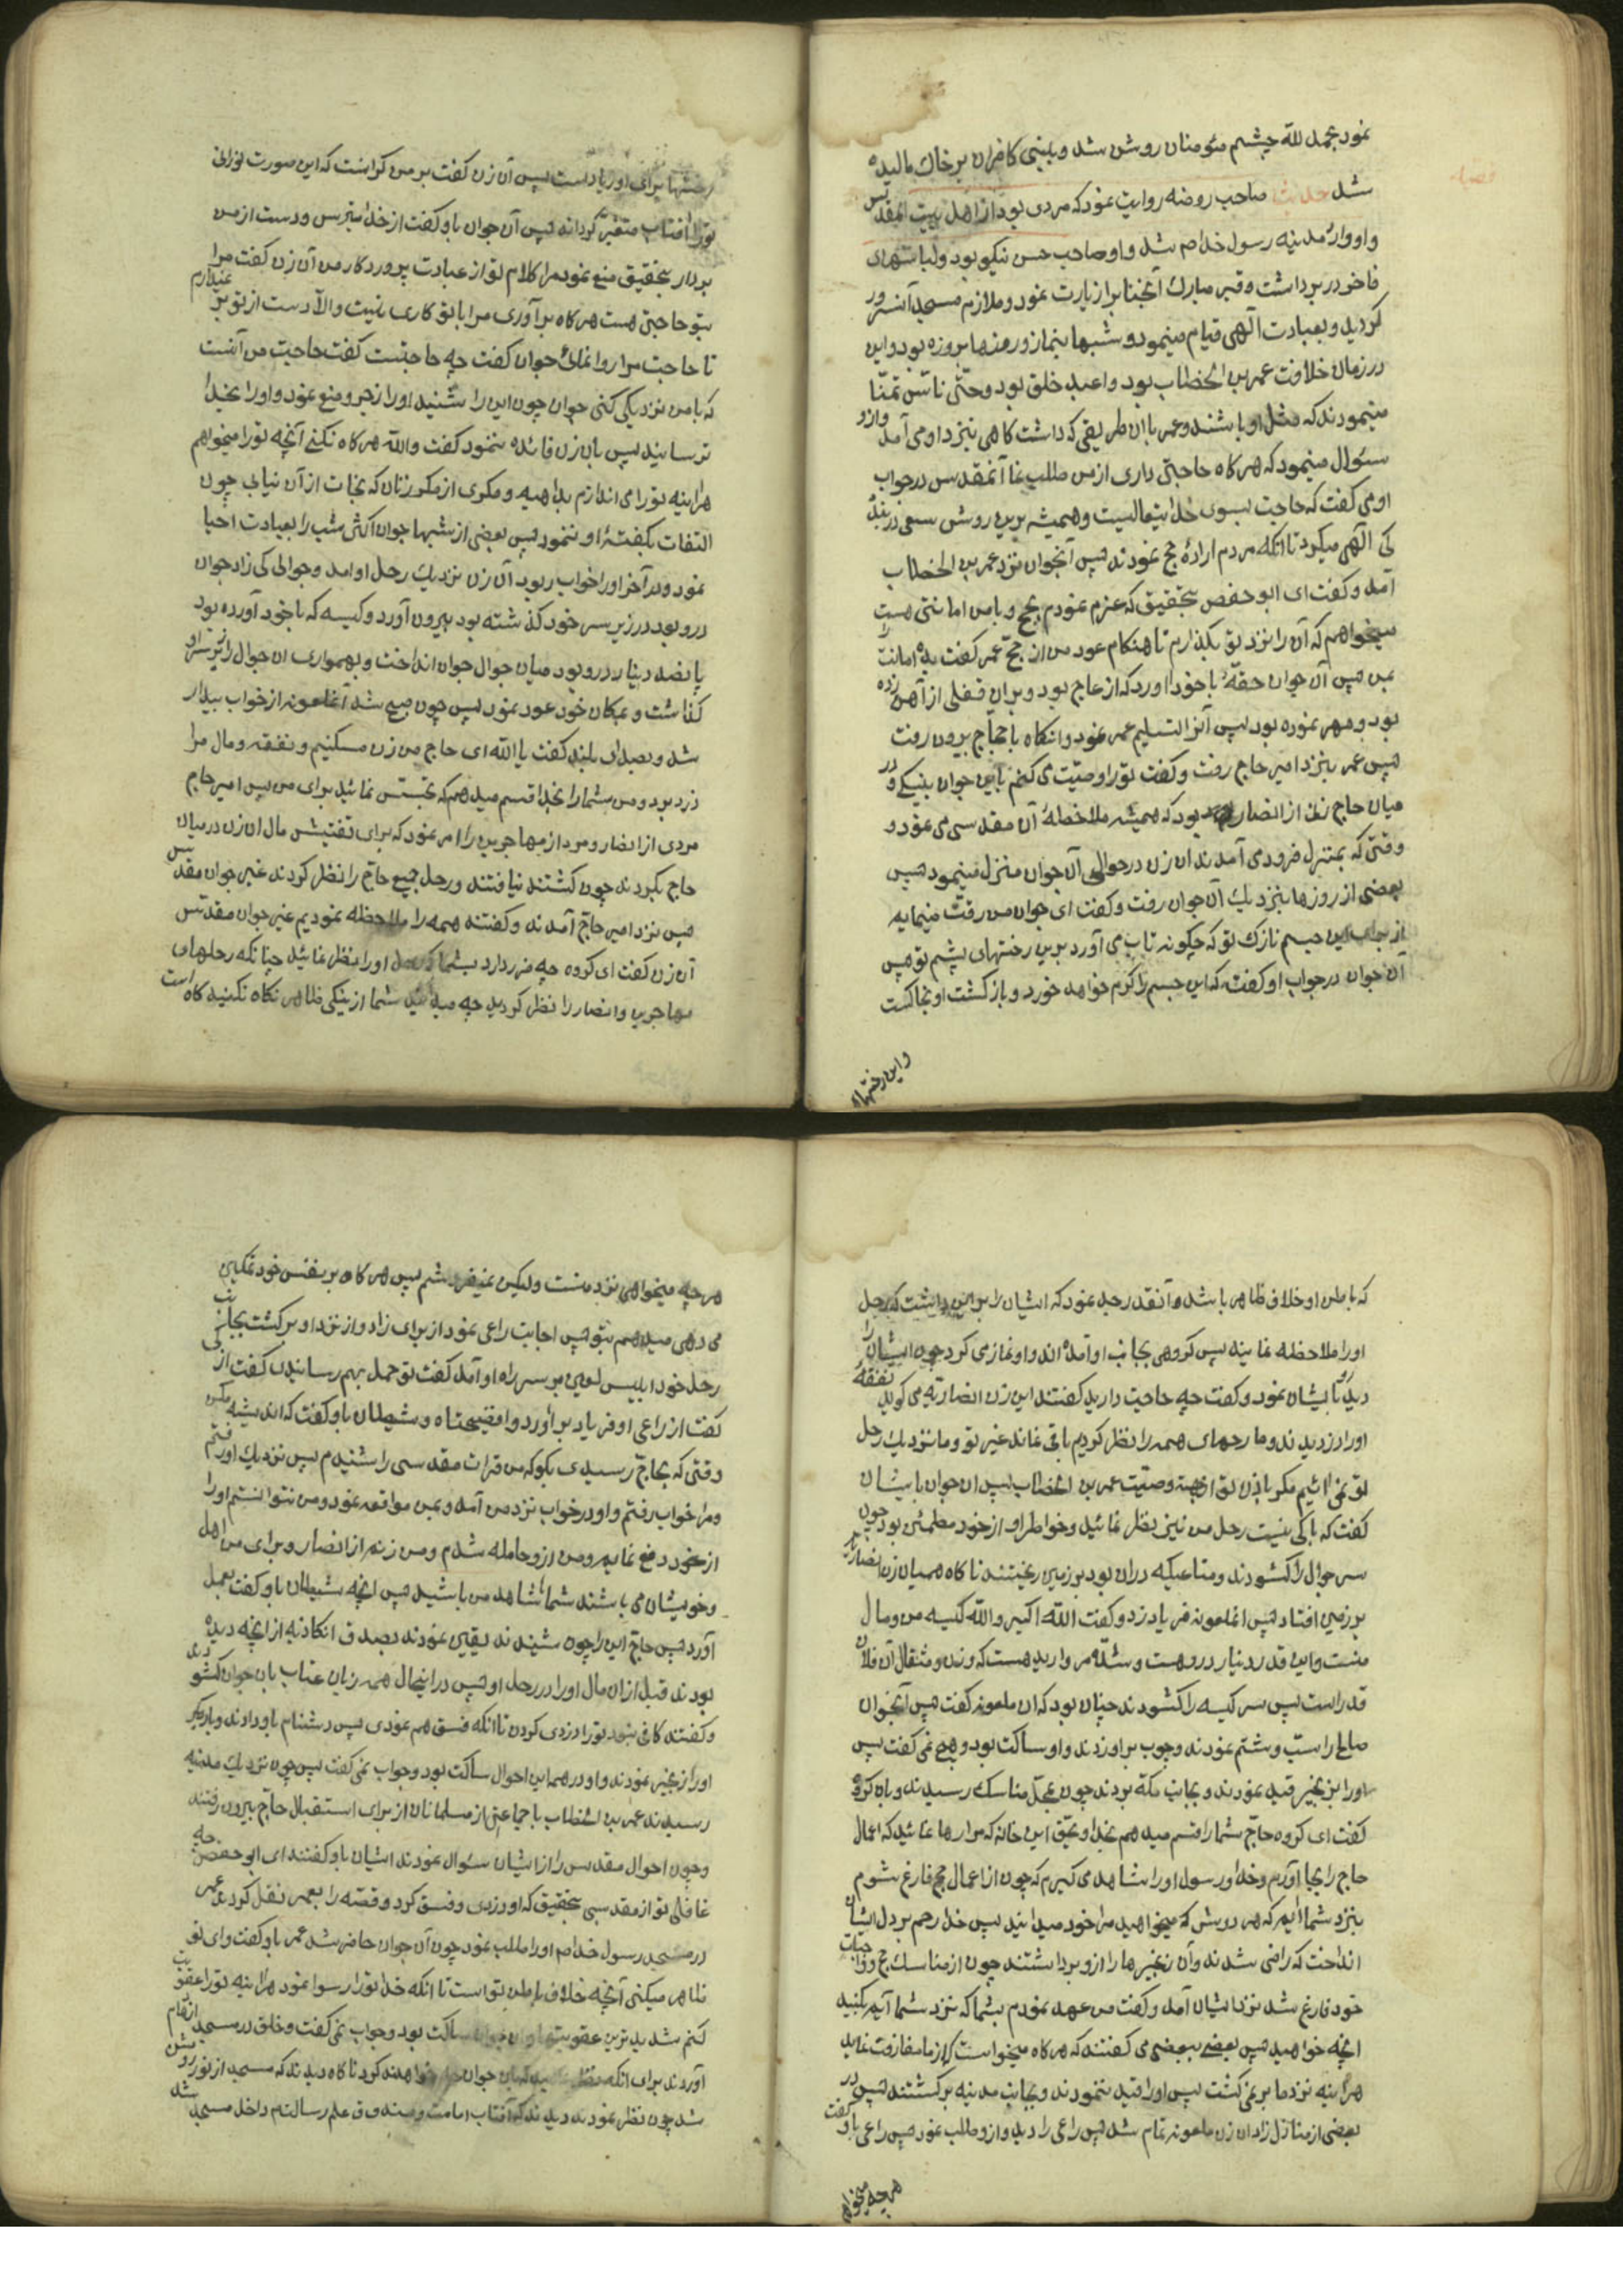 نمود بحمد لله چشم مئومنان روشن شد و بینی کافران بر خاك مالیده
شد حدیث صاحب روضه روایت نمود که مردی بود از اهل بیت المقدس
و او وارد مدینه رسول خدا صم شد و او صاحب حسن نیکو بود و لباسهای
فاخر در برداشت و قبر مبارك آنجناب را زیارت نمود و ملازم مسجد آنسرور
کردید و بعبادت آلهی قیام مینمود و شبها بنماز و روزها بروزه بود و این
در زمان خلافت عمر بن الخطاب بود و اعبد خلق بود و حتّی ناس تمنّا
مینمودند که مثل او باشند و عمر باان طریقی که داشت کاهی بنزد او می آمد و ازو
سئوال مینمود که هر کاه حاجتی داری از من طلب نما آنمقدس در جواب
او می کفت که حاجت بسوی خدا یتعالیست و همیشه برین روش سعی در بندگی
آلهی میکرد تا انکه مردم ارادهٔ حج نمودند پس آنجوان نزد عمر بن الخطاب
آمد و کفت ای ابو حفص بتحقیق که عزم نمودم بحج و بامن امانتی هست
میخواهم که آن را نزد تو بکذارم تا هنکام عود من از حجّ عمر کفت بده امانت را
بمن پس آن جوان حقّهٔ با خود اورد که از عاج بود و بران قفلی از آهن زده
بود و مهر نموده بود پس آنرا تسلیم عمر نمود و انکاه با حجّاج بیرون رفت
پس عمر بنزد امیر حاج رفت و کفت تو را وصیّت می کنم باین جوان بنیکی و در
میان حاج زنی از انصار بود که همیشه ملاحظهٔ آن مقدسی می نمود و
وقتی که بمنزل فرود می آمدند ان زن در حوالی آن جوان منزل مینمود پس
بعضی از روزها بنزدیك آن جوان رفت و کفت ای جوان من رقّت مینمایم
از برای این جسم نازك تو که چکونه تاب می آورد برین رختهای پشم تو پس
آن جوان در جواب او کفت که این جسم را کرم خواهد خورد و بازکشت او بخاکست
و این رختها
رختها برای او زیادست پس آن زن کفت بر من کرانست که این صورت نورانی
تو را افتاب متغیّر کرداند پس آن جوان باو کفت از خدا بترس و دست از من
بردار بتحقیق منع نمود مرا کلام تو از عبادت پروردکار من آن زن کفت مرا
بتو حاجتی هست هر کاه بر آوری مرا با تو کاری نیست و الّا دست از تو بر نمیدارم
تا حاجت مرا روا نمائی جوان کفت چه حاجتست کفت حاجت من آنست
که با من نزدیکی کنی جوان چون این را شنید او را زجر و منع نمود و او را بخدا
ترسانید پس بان زن فائده ننمود کفت والله هر کاه نکنی آنچه تو را میخواهم
هراینه تو را می اندازم بداهیه و مکری از مکر زنان که نجات از آن نیابی چون
التفات بکفتهٔ او ننمود پس بعضی از شبها جوان اکثر شب را بعبادت احیا
نمود و در آخر او را خواب ربود آن زن نزدیك رحل او امد و جوالی که زاد جوان
درو بود در زیر سر خود کذشته بود بیرون آورد و کیسه که با خود آورده بود
پانصد دینار درو بود میان جوال جوان انداخت و بهمواری ان جوال را زیر سر او
کذاشت و بمکان خود عود نمود پس چون صبح شد آنملعونه از خواب بیدار
شد و بصدای بلند کفت یا الله ای حاج من زن مسکنیم و نفقه و مال مرا
دزد برد و من شما را بخدا قسم میدهم که تجسّس نمائید برای من پس امیر حاج
مردی از انصار و مرد از مهاجرین را امر نمود که برای تفتیش مال ان زن در میان
حاج بکردند چون کشتند نیافتند و رحل جمیع حاج را نظر کردند غیر جوان مقدس
پس نزد امیر حاجّ آمدند و کفتند همه را ملاحظه نمودیم غیر جوان مقدسی
آن زن کفت ای کروه چه ضرر دارد بشما که رحل او را نظر نمائید چنانکه رحلهای
مهاجرین و انصار را نظر کردید چه میدانید شما از نیکی ظاهر نکاه نکنید کاه است
که باطن او خلاف ظاهر باشد و آنقدر رجد نمود که ایشان را بر این داشت که رحل
او را ملاحظه نمایند پس کروهی بجانب او آمده اند و او نماز می کرد چون ایشان را
دید رو بایشان نمود و کفت چه حاجت دارید کفتند این زن انصاریّه می کوید نفقهٔ
او را دزدیدند و ما رحلهای همه را نظر کردیم باقی نماند غیر تو و ما نزدیك رحل
تو نمی ائیم مکر باذن تو از جهة وصیّت عمر بن الخطاب پس ان جوان بایشان
کفت که باکی نیست رحل من نیز نظر نمائید و خواطر او از خود مطمئن بود چون
سر جوال را کشودند و متاعیکه دران بود بر زمین ریختند ناکاه همیان زن انصاریّه
بر زمین افتاد پس انملعونه فریاد زد و کفت الله اکبر والله کیسه من و مال
منست و این قدر دینار دروهست و شدّه مروارید هست که وزن و مثقال آن فلان
قدر است پس سر کیسه را کشودند چنان بود که ان ملعونه کفت پس آنجوان
صالح را سبّ و شتم نمودند و چوب بر او زدند و او ساکت بود و هیچ نمی کفت پس
او را بزنجیر قید نمودند و بجانب مکّه بردند چون بمحلّ مناسك رسیدند و بان کروه
کفت ای کروه حاجّ شما را قسم میدهم بخدا و بحقّ این خانه که مرا رها نمائید که اعمال
حاج را بجا آورم و خدا و رسول او را شاهد می کیرم که چون از اعمال حج فارغ شوم
بنزد شما ایم که هر روش که میخواهید مرا خود میدانید پس خدا رحم بر دل ایشان
انداخت که راضی شدند و آن زنجیرها را ازو برداشتند چون از مناسك حج و واجبات
خود فارغ شد نزد ایشان آمد و کفت من عهد نمودم بشما که نزد شما آیم بکنید
انچه خواهید پس بعضی ببعضی می کفتند که هر کاه میخواست که از ما مفارقت نماید
هراینه نزد ما بر نمی کشت پس او را قید ننمودند و بجانب مدینه برکشتند پس در
بعضی از منازل زاد ان زن ملعونه تمام شد پس راعی را دید و ازو طلب نمود پس راعی باو کفت
هر چه میخواهی
هر چه میخواهی نزد منست ولیکن نمیفروشم پس هر کاه بر نفس خود تمکین
می دهی میدهم بتو پس اجابت راعی نمود از برای زاد و از نزد او برکشت بجانب
رحل خود ابلیس لعین بر سر راه او آمد کفت تو حمل بهم رسانیدی کفت از کی
کفت از راعی او فریاد بر آورد وا فضیحتاه و شیطان باو کفت که اندیشه مکن
وقتی که بحاجّ رسیدی بکو که من قرات مقدسی را شنیدم پس نزدیك او رفتم
و مرا خواب رفتم و او در خواب نزد من آمد و بمن مواقعه نمود و من نتوانستم او را
از خود دفع نمایم و من ازو حامله شدم و من زنم از انصار و برای من اهل
و خویشان می باشند شما شاهد من باشید پس انچه شیطان باو کفت بعمل
آورد پس حاجّ این را چون شنیدند یقین نمودند بصدق انکاذبه از انچه دیده
بودند قبل ازان مال او را در رحل او پس در اینحال همه زبان عتاب بان جوان کشودند
و کفتند کافی نبود تو را دزدی کردن تا انکه فسق هم نمودی پس دشنام باو دادند و بار دیکر
او را زنجیر نمودند و او در همه این احوال ساکت بود و جواب نمی کفت پس چون نزدیك مدینه
رسیدند عمر بن الخطاب با جماعتی از مسلمانان از برای استقبال حاجّ بیرون رفتند
و چون احوال مقدس را از ایشان سئوال نمودند ایشان باو کفتند ای ابو حفص چه
غافلی تو از مقدسی بتحقیق که او دزدی و فسق کرد و قصّه را بعمر نقل کردند عمر
در مسجد رسول خدا صم او را طلب نمود چون آن جوان حاضر شد عمر باو کفت وای تو
ظاهر میکنی آنچه خلاف باطن تو است تا انکه خدا تو را رسوا نمود هراینه تو را عقوبت
کنم شدید ترین عقوبتها و ان جوان ساکت بود و جواب نمی کفت و خلق در مسجد ازدحام
آوردند برای انکه نظر نمایند که باین جوان چه خواهند کرد ناکاه دیدند که مسجد از نور روشن شد
شد چون نظر نمودند دیدند که آفتاب امامت و مسند وق علم رسالت داخل مسجد